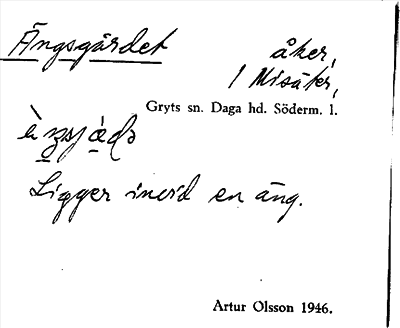 Ängsgärdet åker,
1 Misäter,
Gryts sn. Daga hd. Söderm. l.
Ligger invid en äng.
Artur Olsson 1946.